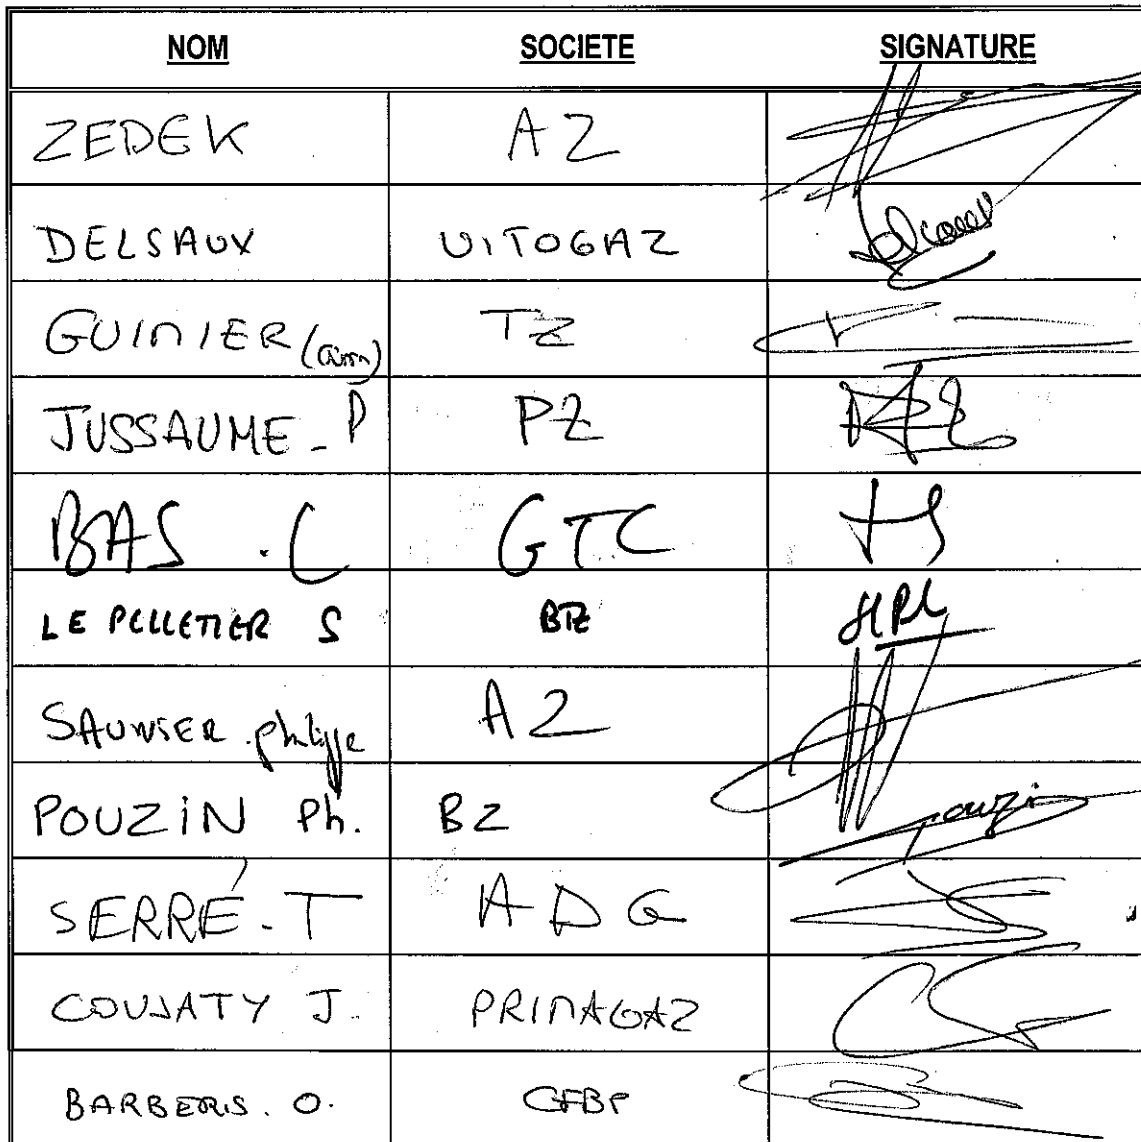 NOM SOCIETE SIGNATURE
ZEDEK AZ
DELSAUX VITOGAZ
GUINIER TZ
JUSSAUME - P PZ
BAS . C GTC
LE PELLETIER S BTZ
SAUNIER philippe AZ
POUZIN Ph. BZ Pouzin
SERRÉ - T ADG
COUSATY J. PRIMAGAZ
BARBERIS . O. CFBP